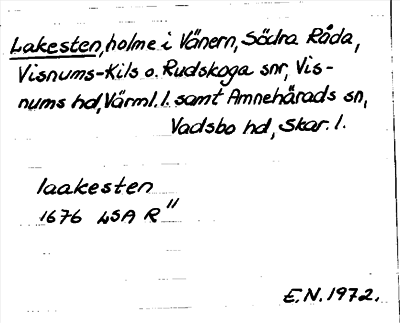 Lakesten, holme i Vänern, Södra Råda,
Visnums-Kils o. Rudskoga snr, Vis-
nums hd, Värml. l. samt Amnehärads sn,
Vadsbo hd, Skar. l.
laakesten
1676 LSA R"
E.N. 1972.